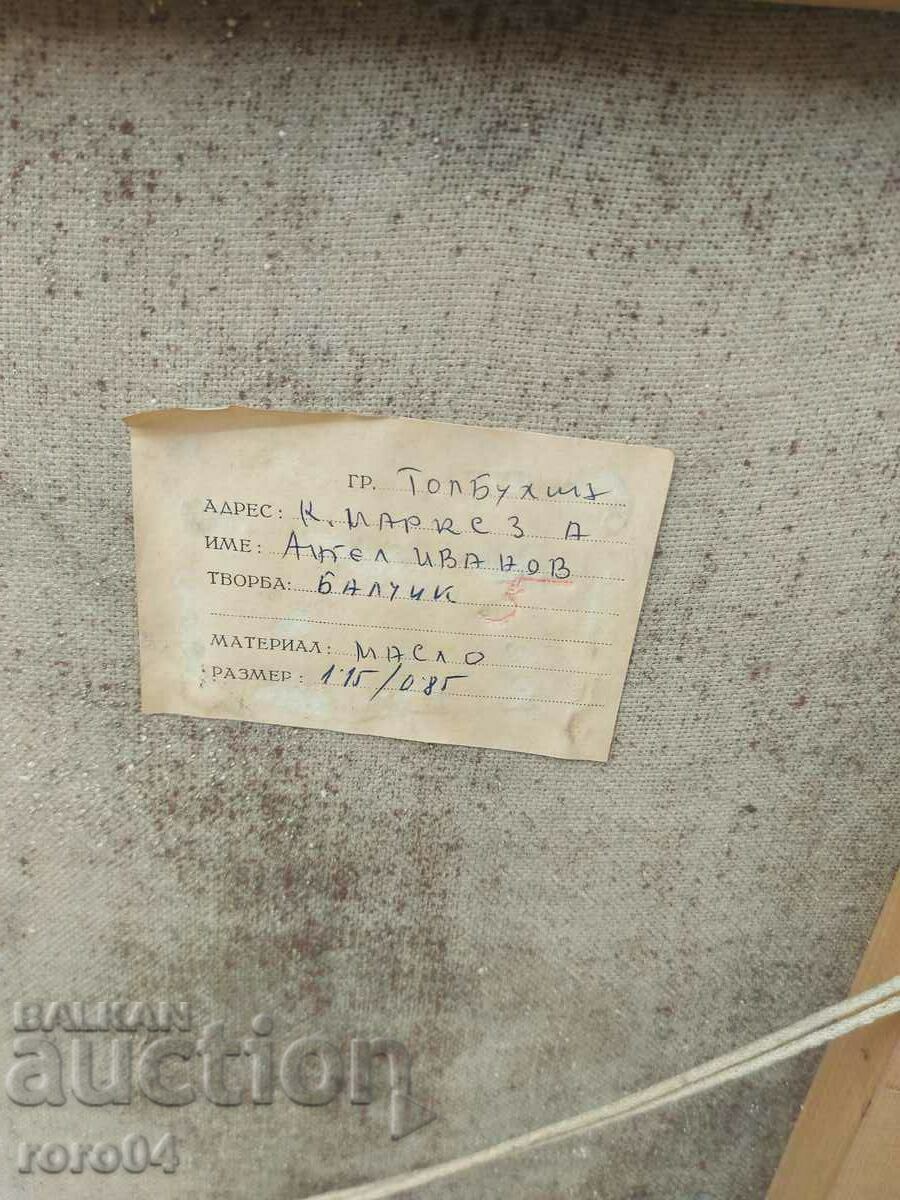 ГР. ТОЛБУХИН
АДРЕС: К. МАРКС 3 А
ИМЕ: АНГЕЛ ИВАНОВ
ТВОРБА: БАЛЧИК
МАТЕРИАЛ: МАСЛО
РАЗМЕР: 1.15/0.85
BALKAN
auction
roro04